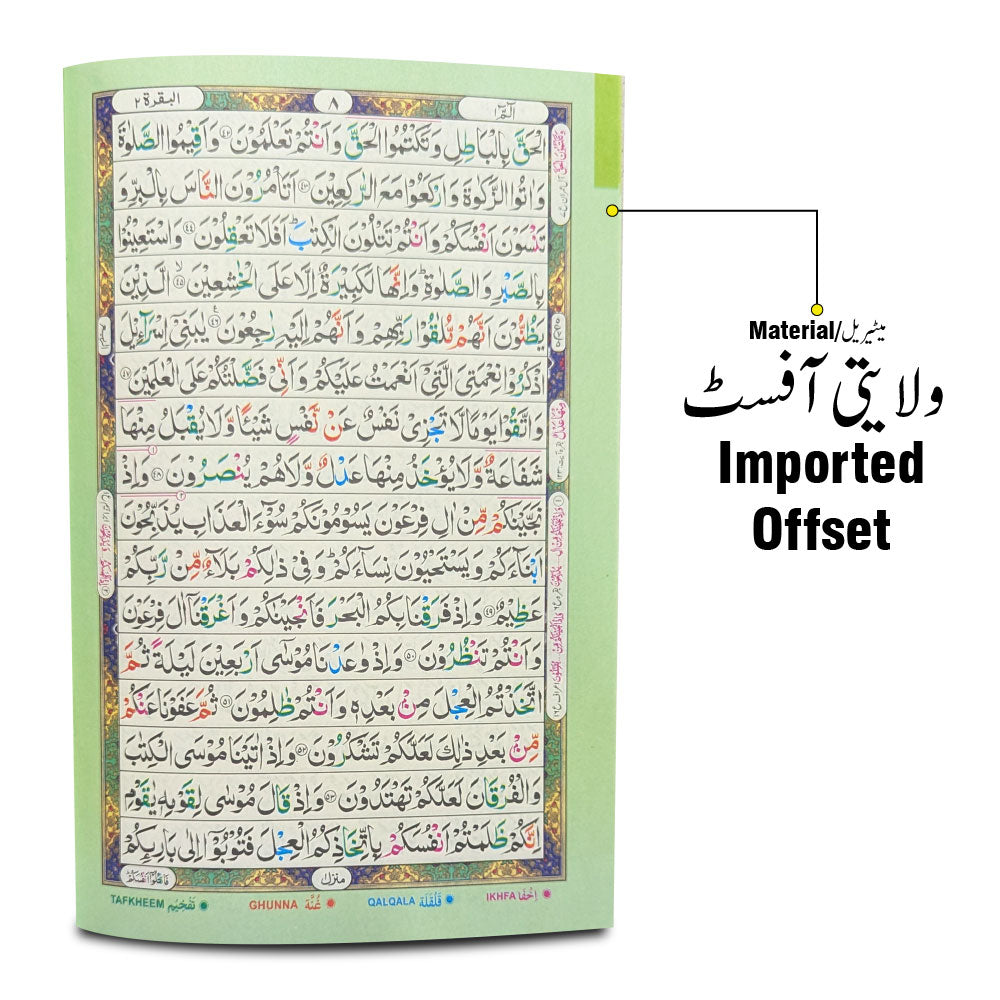 الٓمّٓ ۱
۸
البقرة ۲
الْحَقَّ بِالْبَاطِلِ وَتَكْتُمُوا الْحَقَّ وَاَنْتُمْ تَعْلَمُوْنَ ﴿۴۲﴾ وَاَقِيْمُوا الصَّلٰوةَ
وَاٰتُوا الزَّكٰوةَ وَارْكَعُوْا مَعَ الرّٰكِعِيْنَ ﴿۴۳﴾ اَتَاْمُرُوْنَ النَّاسَ بِالْبِرِّ وَ
تَنْسَوْنَ اَنْفُسَكُمْ وَاَنْتُمْ تَتْلُوْنَ الْكِتٰبَ ؕ اَفَلَا تَعْقِلُوْنَ ﴿۴۴﴾ وَاسْتَعِيْنُوْا
بِالصَّبْرِ وَالصَّلٰوةِ ؕ وَاِنَّهَا لَكَبِيْرَةٌ اِلَّا عَلَى الْخٰشِعِيْنَ ﴿۴۵﴾ۙ الَّذِيْنَ
يَظُنُّوْنَ اَنَّهُمْ مُّلٰقُوْا رَبِّهِمْ وَاَنَّهُمْ اِلَيْهِ رٰجِعُوْنَ ﴿۴۶﴾ يٰبَنِيْٓ اِسْرَآءِيْلَ
اذْكُرُوْا نِعْمَتِيَ الَّتِيْٓ اَنْعَمْتُ عَلَيْكُمْ وَاَنِّيْ فَضَّلْتُكُمْ عَلَى الْعٰلَمِيْنَ ﴿۴۷﴾
وَاتَّقُوْا يَوْمًا لَّا تَجْزِيْ نَفْسٌ عَنْ نَّفْسٍ شَيْـًٔا وَّلَا يُقْبَلُ مِنْهَا
شَفَاعَةٌ وَّلَا يُؤْخَذُ مِنْهَا عَدْلٌ وَّلَا هُمْ يُنْصَرُوْنَ ﴿۴۸﴾ وَاِذْ
نَجَّيْنٰكُمْ مِّنْ اٰلِ فِرْعَوْنَ يَسُوْمُوْنَكُمْ سُوْٓءَ الْعَذَابِ يُذَبِّحُوْنَ
اَبْنَآءَكُمْ وَيَسْتَحْيُوْنَ نِسَآءَكُمْ ؕ وَفِيْ ذٰلِكُمْ بَلَآءٌ مِّنْ رَّبِّكُمْ
عَظِيْمٌ ﴿۴۹﴾ وَاِذْ فَرَقْنَا بِكُمُ الْبَحْرَ فَاَنْجَيْنٰكُمْ وَاَغْرَقْنَآ اٰلَ فِرْعَوْنَ
وَاَنْتُمْ تَنْظُرُوْنَ ﴿۵۰﴾ وَاِذْ وٰعَدْنَا مُوْسٰٓى اَرْبَعِيْنَ لَيْلَةً ثُمَّ
اتَّخَذْتُمُ الْعِجْلَ مِنْۢ بَعْدِهٖ وَاَنْتُمْ ظٰلِمُوْنَ ﴿۵۱﴾ ثُمَّ عَفَوْنَا عَنْكُمْ
مِّنْۢ بَعْدِ ذٰلِكَ لَعَلَّكُمْ تَشْكُرُوْنَ ﴿۵۲﴾ وَاِذْ اٰتَيْنَا مُوْسَى الْكِتٰبَ
وَالْفُرْقَانَ لَعَلَّكُمْ تَهْتَدُوْنَ ﴿۵۳﴾ وَاِذْ قَالَ مُوْسٰى لِقَوْمِهٖ يٰقَوْمِ
اِنَّكُمْ ظَلَمْتُمْ اَنْفُسَكُمْ بِاتِّخَاذِكُمُ الْعِجْلَ فَتُوْبُوْٓا اِلٰى بَارِىِٕكُمْ
منزل
IKHFA اِخْفَا QALQALA قَلْقَلَة GHUNNA غُنَّة TAFKHEEM تَفْخِيْم
Material/میٹیریل
ولایتی آفسٹ
Imported
Offset